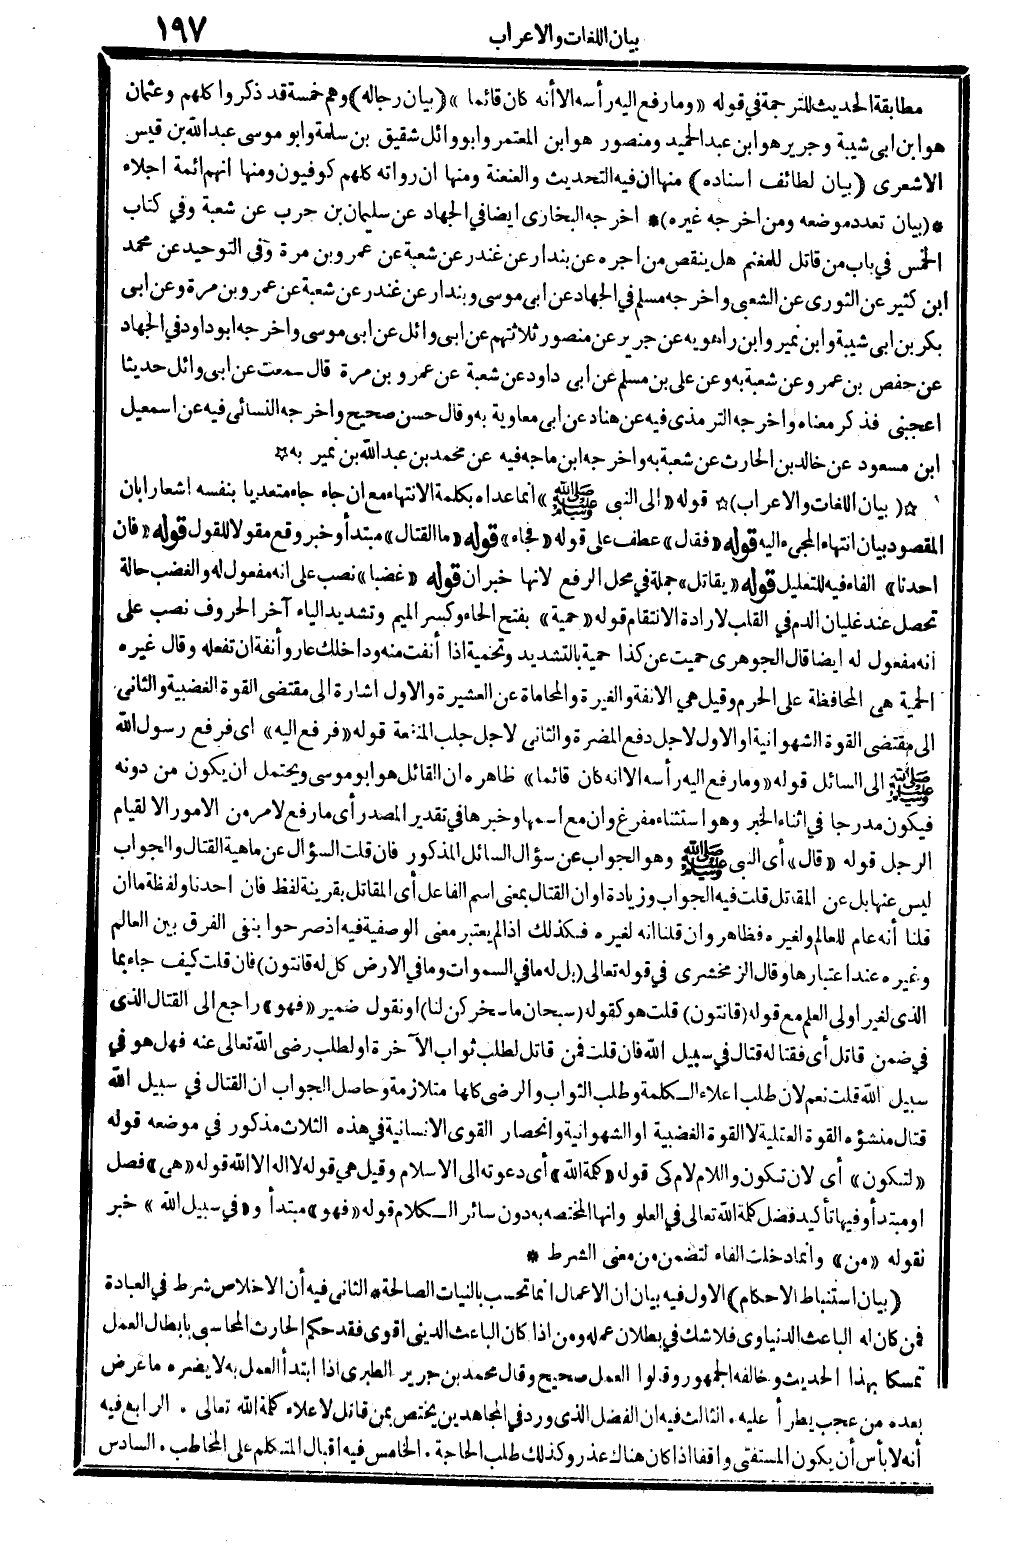 بيان اللغات والاعراب ١٩٧
مطابقة الحديث للترجمة في قوله «وما رفع اليه رأسه الا أنه كان قائما» (بيان رجاله) وهم خمسة قد ذكروا كلهم وعثمان
هو ابن ابى شيبة وجرير هو ابن عبد الحميد ومنصور هو ابن المعتمر وابو وائل شقيق بن سلمة وابو موسى عبد الله بن قيس
الاشعرى (بيان لطائف اسناده) منها ان فيه التحديث والعنعنة ومنها ان رواته كلهم كوفيون ومنها انهم ائمة اجلاء
* (بيان تعدد موضعه ومن اخرجه غيره) * اخرجه البخارى ايضا في الجهاد عن سليمان بن حرب عن شعبة وفي كتاب
الخمس في باب من قاتل للمغنم هل ينقص من اجره عن بندار عن غندر عن شعبة عن عمرو بن مرة وفى التوحيد عن محمد
ابن كثير عن الثورى عن الشعبى واخرجه مسلم في الجهاد عن ابى موسى وبندار عن غندر عن شعبة عن عمرو بن مرة وعن ابى
بكر بن ابى شيبة وابن نمير وابن راهويه عن جرير عن منصور ثلاثتهم عن ابى وائل عن ابى موسى واخرجه ابو داود في الجهاد
عن حفص بن عمرو عن شعبة به وعن على بن مسلم عن ابى داود عن شعبة عن عمرو بن مرة قال سمعت عن ابى وائل حديثا
اعجبنى فذكر معناه واخرجه الترمذى فيه عن هناد عن ابى معاوية به وقال حسن صحيح واخرجه النسائى فيه عن اسمعيل
ابن مسعود عن خالد بن الحارث عن شعبة به واخرجه ابن ماجه فيه عن محمد بن عبد الله بن نمير به ☆
☆ (بيان اللغات والاعراب) ☆ قوله «الى النبى ﷺ» انما عداه بكلمة الانتهاء مع ان جاء جاء متعديا بنفسه اشعارا بان
المقصود بيان انتهاء المجىء اليه قوله «فقال» عطف على قوله «فجاء» قوله «ما القتال» مبتدأ وخبر وقع مقولا للقول قوله «فان
احدنا» الفاء فيه للتعليل قوله «يقاتل» جملة في محل الرفع لانها خبر ان قوله «غضبا» نصب على انه مفعول له والغضب حالة
تحصل عند غليان الدم في القلب لارادة الانتقام قوله «حمية» بفتح الحاء وكسر الميم وتشديد الياء آخر الحروف نصب على
انه مفعول له ايضا قال الجوهرى حميت عن كذا حمية بالتشديد وتحمية اذا أنفت منه وداخلك عار وأنفة ان تفعله وقال غيره
الحمية هى المحافظة على الحرم وقيل هي الانفة والغيرة والمحاماة عن العشيرة والاول اشارة الى مقتضى القوة الغضبية والثانى
الى مقتضى القوة الشهوانية او الاول لاجل دفع المضرة والثانى لاجل جلب المنفعة قوله «فرفع اليه» اى فرفع رسول الله
ﷺ الى السائل قوله «وما رفع اليه رأسه الا انه كان قائما» ظاهره ان القائل هو ابو موسى ويحتمل ان يكون من دونه
فيكون مدرجا في اثناء الخبر وهو استثناء مفرغ وان مع اسمها وخبرها في تقدير المصدر أى ما رفع لامر من الامور الا لقيام
الرجل قوله «قال» أى النبى ﷺ وهو الجواب عن سؤال السائل المذكور فان قلت السؤال عن ماهية القتال والجواب
ليس عنها بل عن المقاتل قلت فيه الجواب وزيادة او ان القتال بمعنى اسم الفاعل أى المقاتل بقرينة لفظ فان احدنا ولفظة ما ان
قلنا أنه عام للعالم ولغيره فظاهر وان قلنا انه لغيره فكذلك اذا لم يعتبر معنى الوصفية فيه اذ صرحوا بنفى الفرق بين العالم
وغيره عند اعتبارها وقال الزمخشرى في قوله تعالى (بل له ما في السموات وما في الارض كل له قانتون) فان قلت كيف جاء بما
الذى لغير اولى العلم مع قوله (قانتون) قلت هو كقوله (سبحان ما سخركن لنا) او نقول ضمير «فهو» راجع الى القتال الذى
في ضمن قاتل أى فقتاله قتال في سبيل الله فان قلت فمن قاتل لطلب ثواب الآخرة او لطلب رضى الله تعالى عنه فهل هو في
سبيل الله قلت نعم لان طلب اعلاء الكلمة وطلب الثواب والرضى كلها متلازمة وحاصل الجواب ان القتال في سبيل الله
قتال منشؤه القوة العقلية لا القوة الغضبية او الشهوانية وانحصار القوى الانسانية في هذه الثلاث مذكور في موضعه قوله
«لتكون» أى لان تكون واللام لام كى قوله «كلمة الله» أى دعوته الى الاسلام وقيل هي قوله لا اله الا الله قوله «هى» فصل
او مبتدأ وفيها تأكيد فضل كلمة الله تعالى في العلو وانها المختصة به دون سائر الكلام قوله «فهو» مبتدأ و«في سبيل الله» خبر
لقوله «من» وانما دخلت الفاء لتضمن من معنى الشرط *
(بيان استنباط الاحكام) الاول فيه بيان ان الاعمال انما تحسب بالنيات الصالحة * الثانى فيه أن الاخلاص شرط في العبادة
فمن كان له الباعث الدنياوى فلا شك في بطلان عمله ومن اذا كان الباعث الدينى اقوى فقد حكم الحارث المحاسبى بابطال العمل
تمسكا بهذا الحديث وخالفه الجمهور وقالوا العمل صحيح وقال محمد بن جرير الطبرى اذا ابتدأ العمل به لا يضره ما عرض
بعده من عجب يطرأ عليه . الثالث فيه ان الفضل الذى ورد في المجاهدين يختص بمن قاتل لاعلاء كلمة الله تعالى . الرابع فيه
أنه لا بأس أن يكون المستفتى واقفا اذا كان هناك عذر وكذلك طلب الحاجة . الخامس فيه اقبال المتكلم على المخاطب . السادس